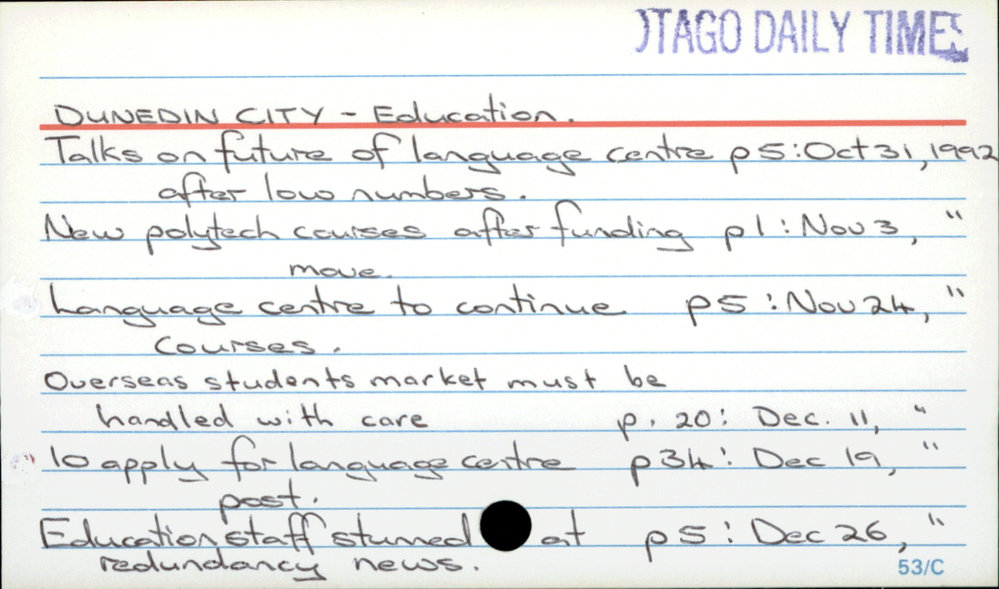 OTAGO DAILY TIMES
DUNEDIN CITY - Education.
Talks on future of language centre p5:Oct 31, 1992
after low numbers.
New polytech courses after funding p1: Nov 3, "
move.
Language centre to continue p5: Nov 24, "
courses.
Overseas students market must be
handled with care p. 20: Dec. 11, "
10 apply for language centre p34: Dec 19, "
post.
Education staff stunned at p5: Dec 26, "
redundancy news.
53/C